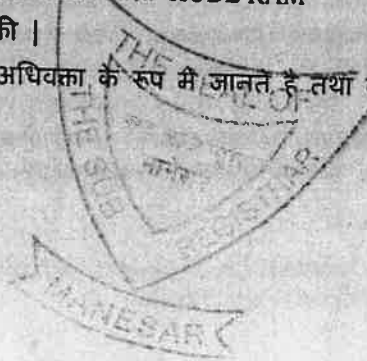 की |
अधिवक्ता के रूप में जानते है तथा
THE SEAL OF
THE SUB
REGISTRAR
मानेसर
MANESAR